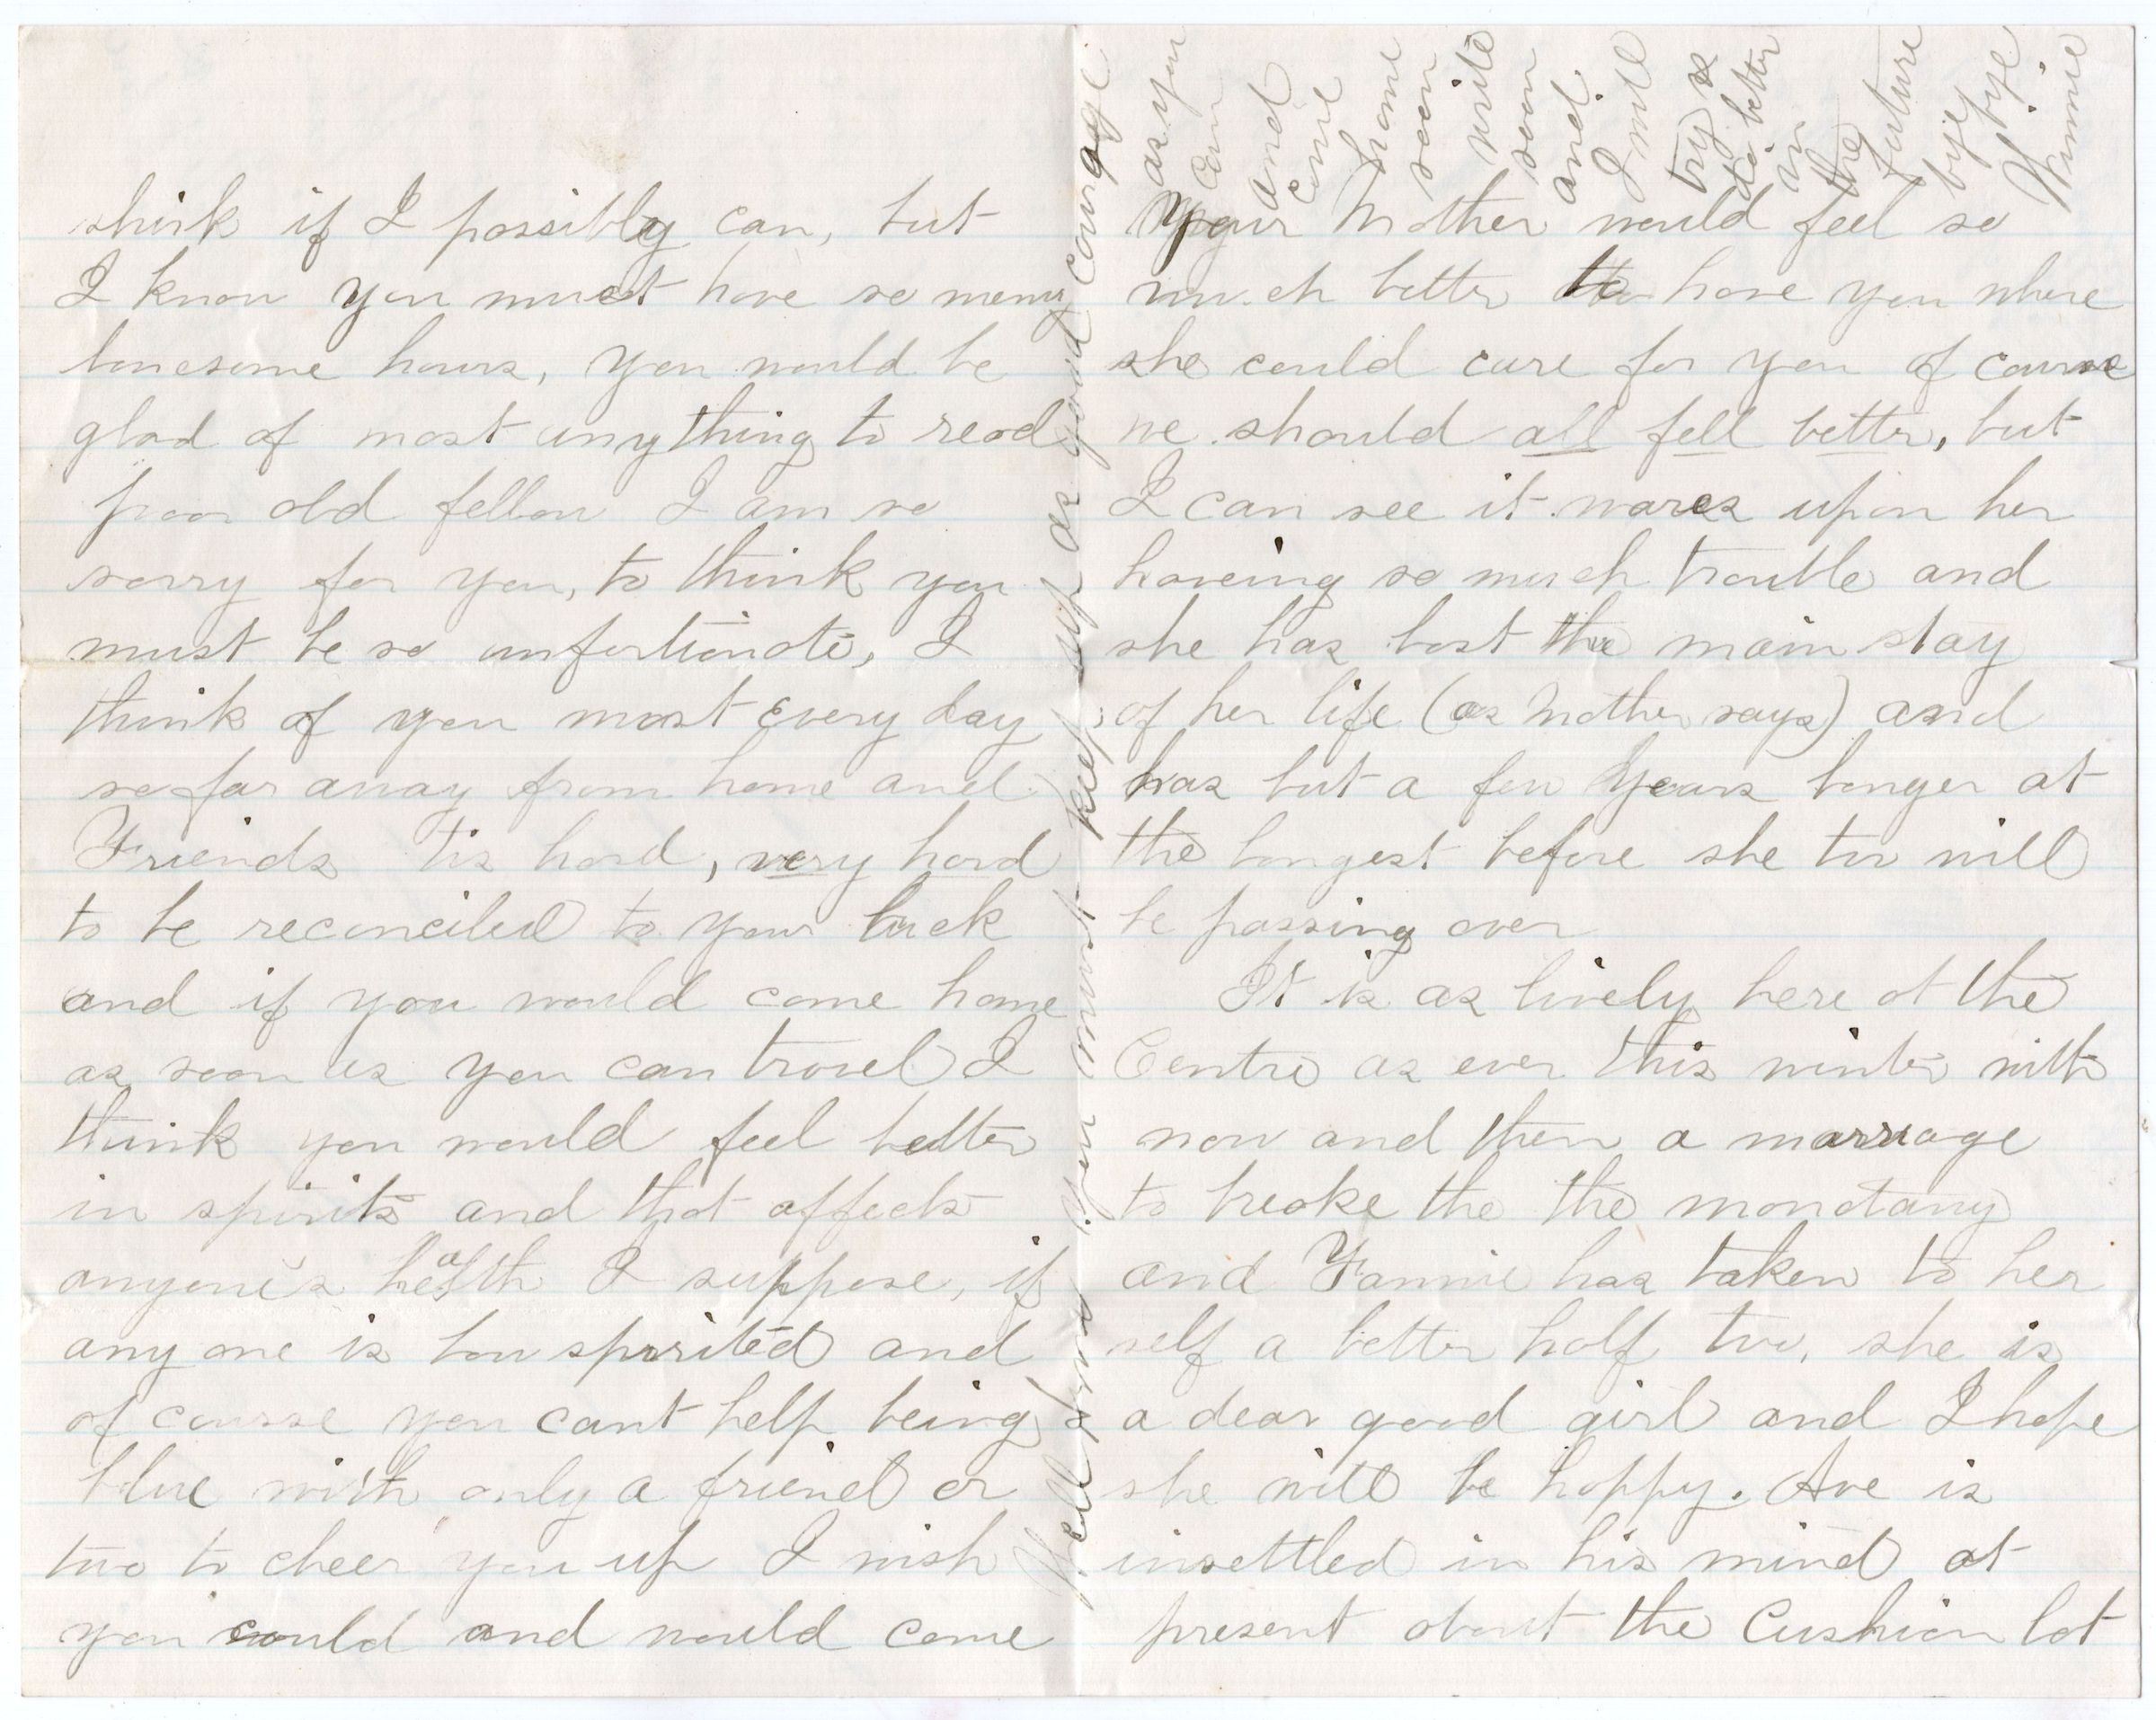 shirk if I possibly can, but
I know you must have so meny
lonesome hours, you would be
glad of most anything to read
poor old fellow I am so
sorry for you, to think you
must be so unfortunate, I
think of you most every day
so far away from home and
Friends tis hard, very hard
to be reconciled to your luck
and if you would come home
as soon as you can travel I
think you would feel better
in spirits and that affects
anyone's health I suppose, if
any one is low spirited and
of course you cant help being
blue with only a friend or
two to cheer you up I wish
you could and would come
Your Mother would feel so
much better to have you where
she could care for you of course
we should all fell better, but
I can see it wares upon her
haveing so much trouble and
she has lost the main stay
of her life (as Mother says) and
has but a few years longer at
the longest before she too will
be passing over
It is as lively here at the
Centre as ever this winter with
now and then a marriage
to breake the the monotany
and Fannie has taken to her
self a better half too, she is
a dear good girl and I hope
she will be happy. Ave is
unsettled in his mind at
present about the Cushion lot
you must keep up as good courage
as you
can
and
come
home
soon
write
soon
and
I will
try &
do better
in
the
future
bye
bye
Winnie